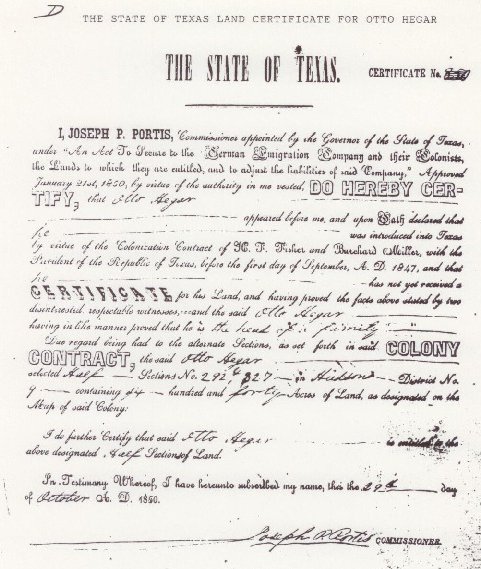 D
THE STATE OF TEXAS LAND CERTIFICATE FOR OTTO HEGAR
THE STATE OF TEXAS.
CERTIFICATE No.
I, JOSEPH P. PORTIS, Commissioner appointed by the Governor of the State of Texas,
under "An Act To Secure to the German Emigration Company and their Colonists,
the Lands to which they are entitled, and to adjust the liabilities of said Company," Approved
January 21st, 1850, by virtue of the authority in me vested, DO HEREBY CER-
TIFY, that Otto Hegar
appeared before me, and upon Oath declared that
he was introduced into Texas
by virtue of the Colonization Contract of H. F. Fisher and Burchard Miller, with the
President of the Republic of Texas, before the first day of September, A. D. 1847, and that
he has not yet received a
CERTIFICATE for his Land, and having proved the facts above stated by two
disinterested, respectable witnesses,—and the said Otto Hegar
having in like manner proved that he is the head of a family
Due regard being had to the alternate Sections, as set forth in said COLONY
CONTRACT, the said Otto Hegar
selected Half Sections No. 292, & 327 in District No.
9 containing hundred and forty Acres of Land, as designated on the
Map of said Colony:
I do further Certify that said Otto Hegar is entitled to the
above designated Half Sections of Land.
In Testimony Whereof, I have hereunto subscribed my name, this the 29th day
of October A. D. 1850.
Joseph P Portis COMMISSIONER.